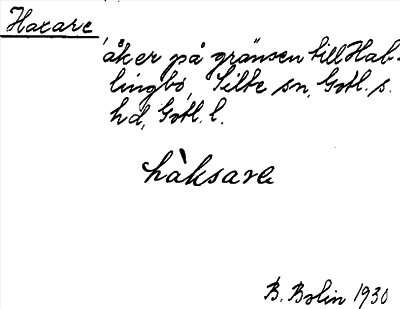 Haxare,
åker på gränsen till Hab-
lingbo, Silte sn, Gotl. s.
hd, Gotl. l.
hàksare
B. Bolin 1930